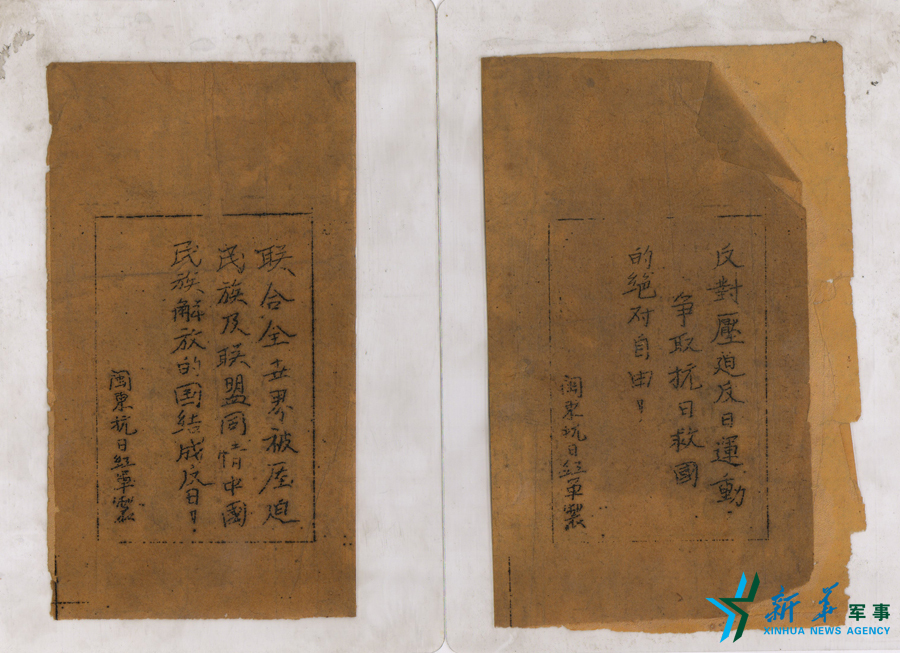 联合全世界被压迫
民族及联盟同情中國
民族解放的国结成反日！
闽東抗日红軍製
反對壓迫反日運動．
争取抗日救國
的绝对自由！
闽东抗日红军製
新华军事
XINHUA NEWS AGENCY